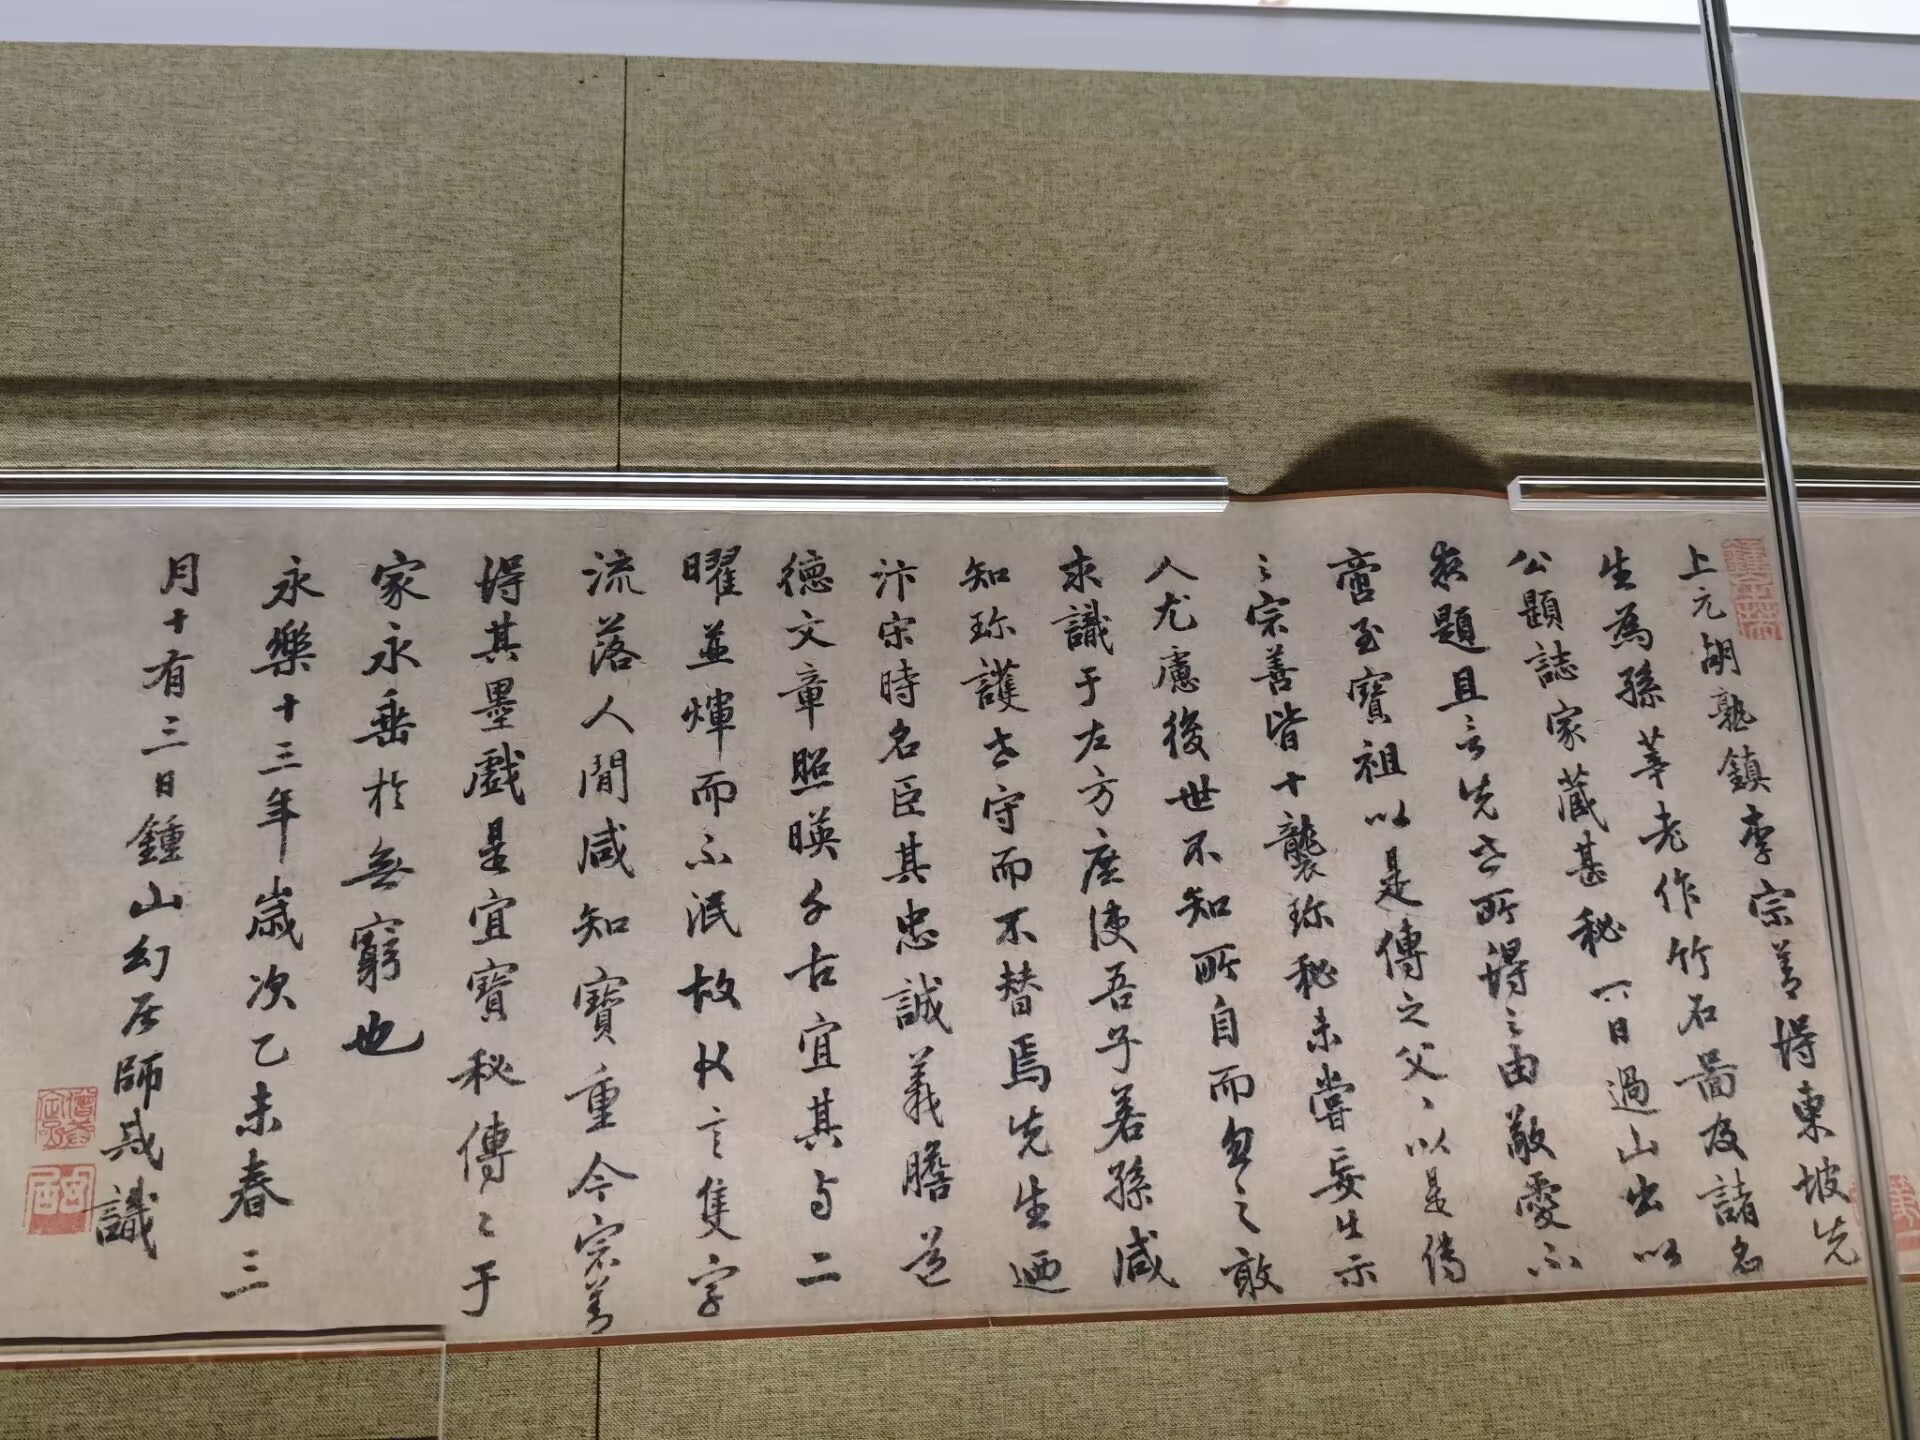 上元胡熟鎮李宗善得東坡先
生為孫莘老作竹石圖及諸名
公題誌家藏甚秘一日過山出以
求題且言先世所得之由敬愛不
啻至寶祖以是傳之父〻以是傳
之宗善皆十襲珎秘未嘗妄出示
人尤慮後世不知所自而忽之敢
求識于左方庶使吾子若孫咸
知珎護世守而不替焉先生迺
汴宋時名臣其忠誠義膽道
德文章照暎千古宜其与二
曜並煇而不泯故片言隻字
流落人間咸知寶重今宗善
得其墨戲是宜寶秘傳之于
家永垂於無窮也
永樂十三年歲次乙未春三
月十有三日鍾山幻居師戒識